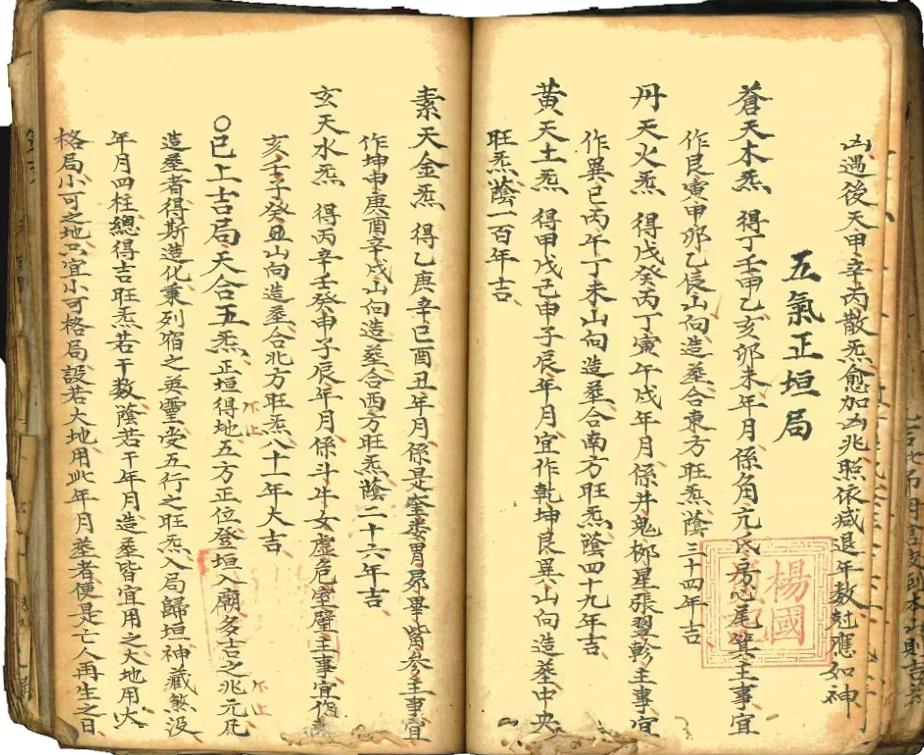 凶遇後天甲辛丙散炁愈加凶兆照依減退年数尅應如神
五氣正垣局
蒼天木炁 得丁壬甲乙亥卯未年月係角亢氐房心尾箕主事宜
作艮寅甲卯乙辰山向造塟合東方旺炁蔭三十四年吉
丹天火炁 得戊癸丙丁寅午戌年月係井鬼柳星張翌軫主事宜
作巽巳丙午丁未山向造塟合南方旺炁蔭四十九年吉
黃天土炁 得甲戊己申子辰年月宜作乾坤艮巽山向造塟中央
旺炁蔭一百年吉
素天金炁 得乙庚辛巳酉丑年月係是奎婁胃昴畢觜参主事宜
作坤申庚酉辛戌山向造塟合西方旺炁蔭二十六年吉
玄天水炁 得丙辛壬癸申子辰年月係斗牛女虛危室壁主事宜作
亥壬子癸丑山向造塟合北方旺炁八十一年大吉
○已上吉局天合五炁正垣得地五方正位登垣入廟多吉之兆元凡
造塟者得斯造化秉列宿之英靈受五行之旺炁入局歸垣神藏煞没
年月四柱總得吉旺炁若干数蔭若干年月造塟皆宜用之大地用大
格局小可之地只宜小可格局設若大地用此年月塟者便是亡人再生之日
楊國